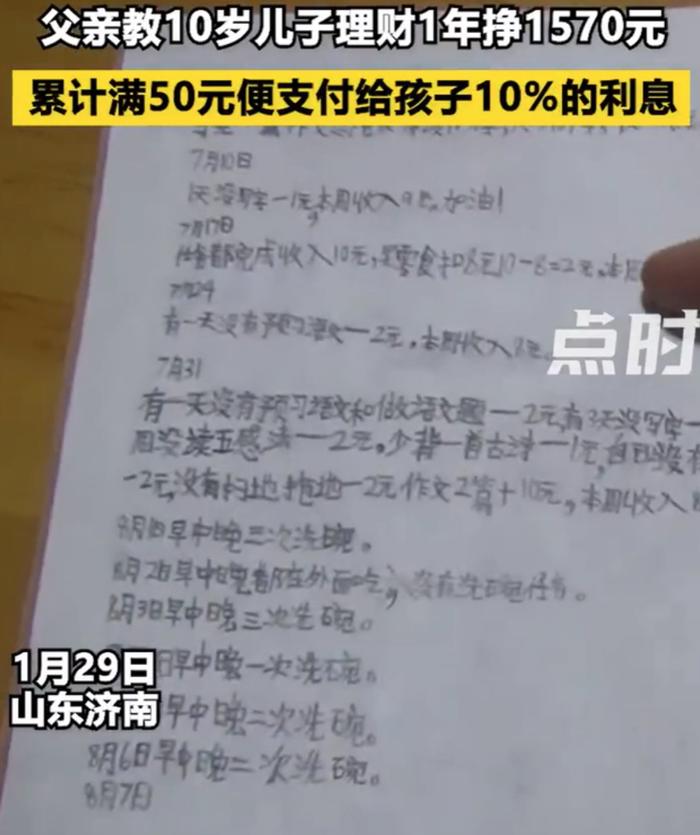 父亲教10岁儿子理财1年挣1570元
累计满50元便支付给孩子10%的利息
7月10日
1天没写字一1元,本周收入9元。加油!
7月17日
都完成收入10元,零食扣8元10-8=2元。本周
7月24
有一天没有预习语文一2元,本周收入8元。
点时
7月31
有一天没有预习语文和做语文题一2元,有3天没写字一
周没读五感法一2元。少背一首古诗一1元,
-2元,没有扫地拖地一2元作文2篇+10元,本周收入
8月1日早中晚三次洗碗。
8月2日早中晚都在外面吃,没有洗碗任务。
8月3日早中晚三次洗碗。
日早中晚一次洗碗。
早中晚二次洗碗。
8月6日早中晚二次洗碗。
8月7日
1月29日
山东济南